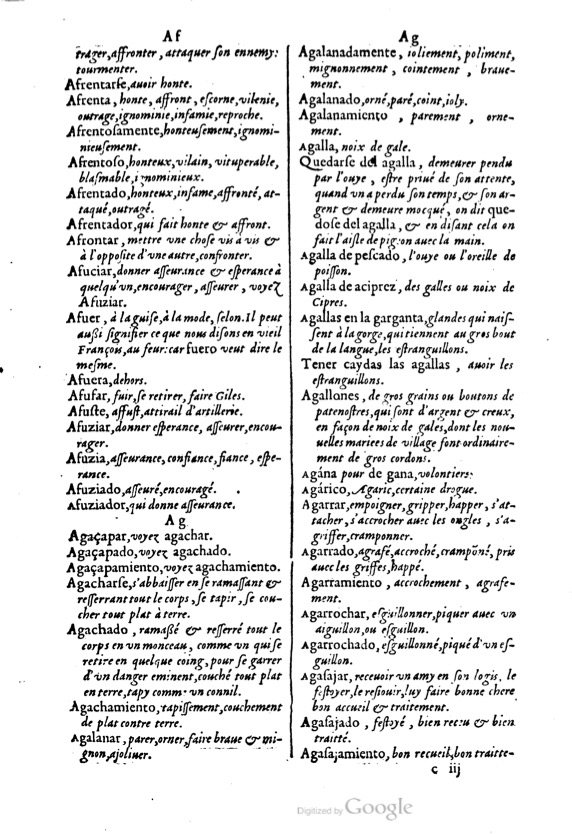 Af
trager, affronter, attaquer son ennemy:
tourmenter.
Afrentarse, auoir honte.
Afrenta, honte, affront, escorne, vilenie,
outrage, ignominie, infamie, reproche.
Afrentosamente, honteusement, ignomi-
nieusement.
Afrentoso, honteux, vilain, vituperable,
blasmable, ignominieux.
Afrentado, honteux, infame, affronté, at-
taqué, outragé.
Afrentador, qui fait honte & affront.
Afrontar, mettre vne chose vis à vis &
à l'opposite d'vne autre, confronter.
Afuciar, donner asseurance & esperance à
quelqu'vn, encourager, asseurer, voyez
Afuziar.
Afuer, à la guise, à la mode, selon. Il peut
aussi signifier ce que nous disons en vieil
François, au feur: car fuero veut dire le
mesme.
Afuera, dehors.
Afufar, fuir, se retirer, faire Giles.
Afuste, affust, attirail d'artillerie.
Afuziar, donner esperance, asseurer, encou-
rager.
Afuzia, asseurance, confiance, fiance, espe-
rance.
Afuziado, asseuré, encouragé.
Afuziador, qui donne asseurance.
Ag
Agaçapar, voyez agachar.
Agaçapado, voyez agachado.
Agaçapamiento, voyez agachamiento.
Agacharse, s'abbaisser en se ramassant &
resserrant tout le corps, se tapir, se cou-
cher tout plat à terre.
Agachado, ramaßé & resserré tout le
corps en vn monceau, comme vn qui se
retire en quelque coing, pour se garrer
d'vn danger eminent, couché tout plat
en terre, tapy comme vn connil.
Agachamiento, tapissement, couchement
de plat contre terre.
Agalanar, parer, orner, faire braue & mi-
gnon, ajoliuer.
Ag
Agalanadamente, ioliement, poliment,
mignonnement, cointement, braue-
ment.
Agalanado, orné, paré, coint, ioly.
Agalanamiento, parement, orne-
ment.
Agalla, noix de gale.
Quedarse del agalla, demeurer pendu
par l'ouye, estre priué de son attente,
quand vn a perdu son temps, & son ar-
gent & demeure mocqué, on dit que-
dose del agalla, & en disant cela on
fait l'aisle de pigeon auec la main.
Agalla de pescado, l'ouye ou l'oreille de
poisson.
Agalla de aciprez, des galles ou noix de
Cipres.
Agallas en la garganta, glandes qui nais-
sent à la gorge, qui tiennent au gros bout
de la langue, les estranguillons.
Tener caydas las agallas, auoir les
estranguillons.
Agallones, de gros grains ou boutons de
patenostres, qui sont d'argent & creux,
en façon de noix de gales, dont les nou-
uelles mariees de village font ordinaire-
ment de gros cordons.
Agána pour de gana, volontiers.
Agárico, Agaric, certaine drogue.
Agarrar, empoigner, gripper, happer, s'at-
tacher, s'accrocher auec les ongles, s'a-
griffer, cramponner.
Agarrado, agrafé, accroché, cramponé, pris
auec les griffes, happé.
Agarramiento, accrochement, agrafe-
ment.
Agarrochar, esguillonner, piquer auec vn
aiguillon, ou esguillon.
Agarrochado, esguillonné, piqué d'vn es-
guillon.
Agasajar, receuoir vn amy en son logis, le
festoyer, le resiouir, luy faire bonne chere
bon accueil & traitement.
Agasajado, festoyé, bien receu & bien
traitté.
Agasajamiento, bon recueil, bon traitte-
c iij
Digitized by Google